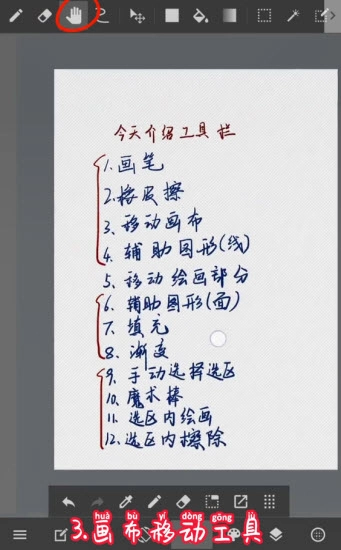 今天介绍工具栏
1.画笔
2.橡皮擦
3、移动画布
4、辅助图形(线)
5、移动绘画部分
6、辅助图形(面)
7、填充
8、渐变
9、手动选择选区
10、魔术棒
11、选区内绘画
12、选区内擦除
huà bù yí dòng gōng jù
3.画布移动工具